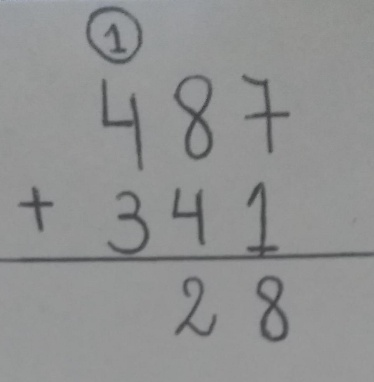 1
487
+ 341
28